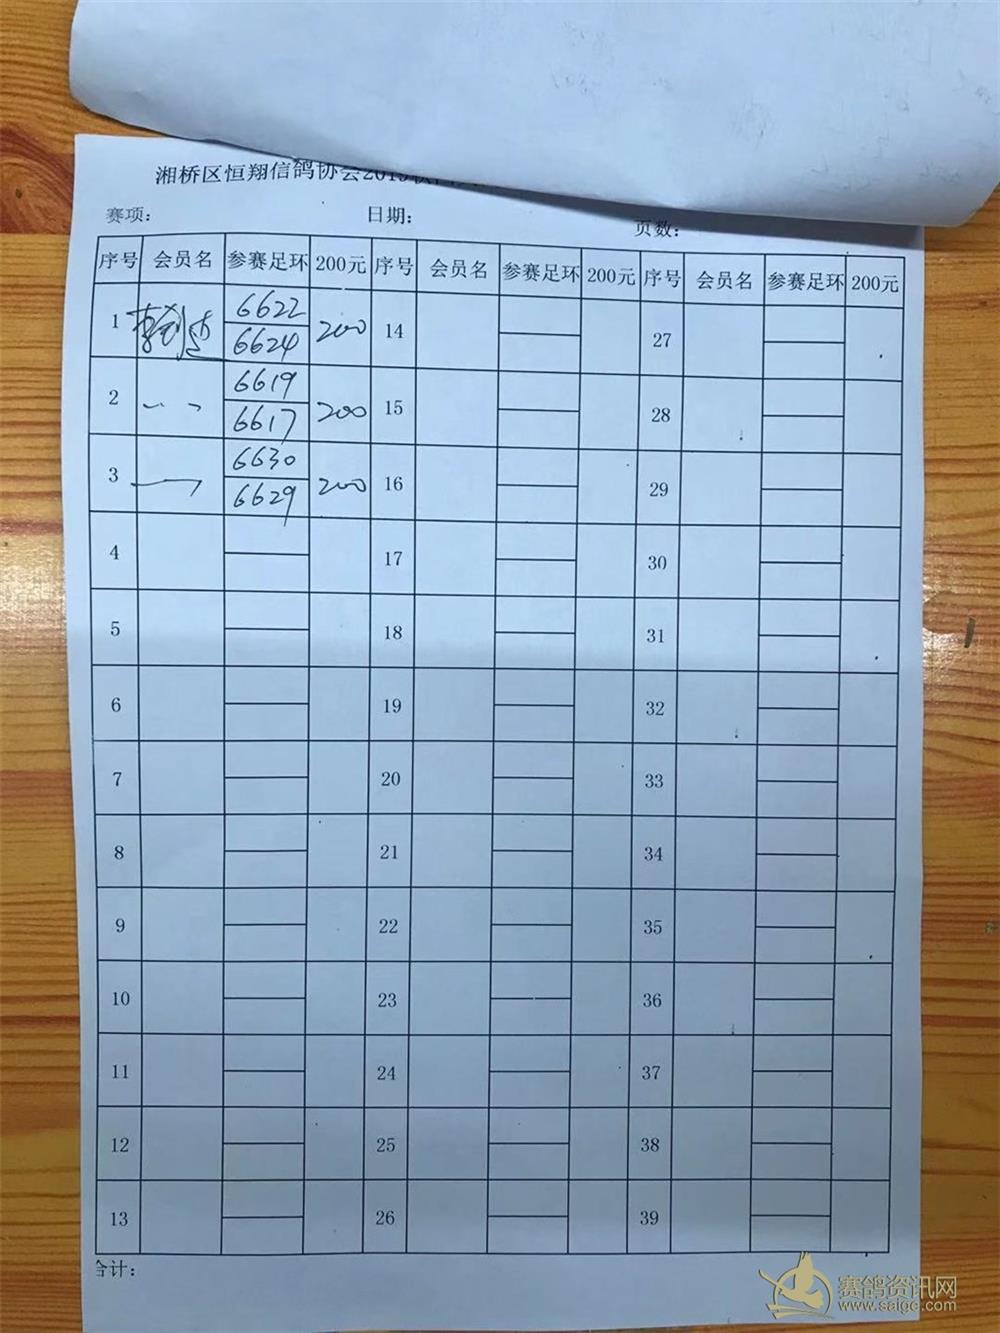 湘桥区恒翔信鸽协会2019秋
赛项： 日期： 页数：
序号 会员名 参赛足环 200元 序号 会员名 参赛足环 200元 序号 会员名 参赛足环 200元
1 6622 6624 200 14 27
2 6619 6617 200 15 28
3 6630 6629 200 16 29
4 17 30
5 18 31
6 19 32
7 20 33
8 21 34
9 22 35
10 23 36
11 24 37
12 25 38
13 26 39
合计：
赛鸽资讯网
www.saige.com